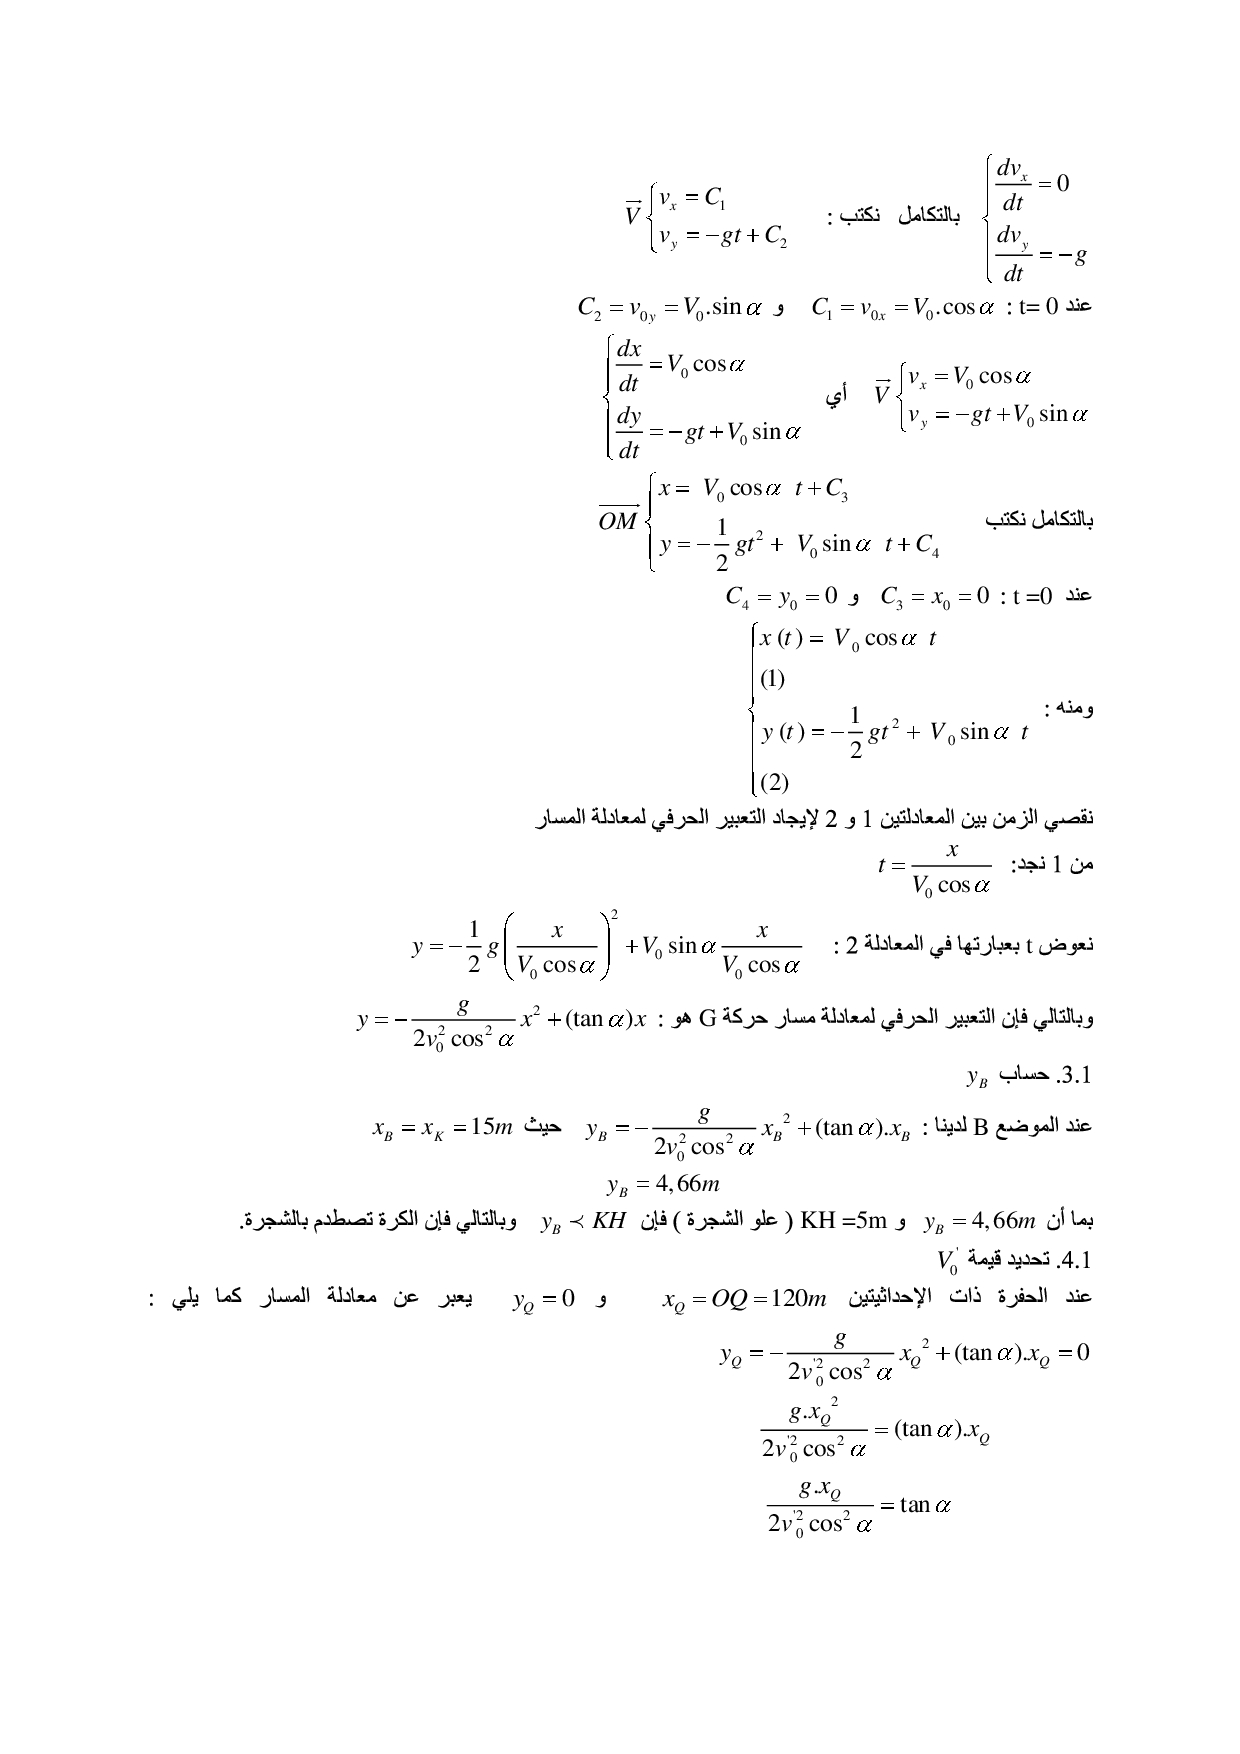 $\begin{cases} \frac{dv_x}{dt} = 0 \\ \frac{dv_y}{dt} = -g \end{cases}$ بالتكامل نكتب : $\vec{V} \begin{cases} v_x = C_1 \\ v_y = -gt + C_2 \end{cases}$
عند t= 0 : $C_1 = v_{0x} = V_0.\cos\alpha$ و $C_2 = v_{0y} = V_0.\sin\alpha$
$\vec{V} \begin{cases} v_x = V_0 \cos\alpha \\ v_y = -gt + V_0 \sin\alpha \end{cases}$ أي $\begin{cases} \frac{dx}{dt} = V_0 \cos\alpha \\ \frac{dy}{dt} = -gt + V_0 \sin\alpha \end{cases}$
بالتكامل نكتب $\overrightarrow{OM} \begin{cases} x = V_0 \cos\alpha \; t + C_3 \\ y = -\frac{1}{2} gt^2 + V_0 \sin\alpha \; t + C_4 \end{cases}$
عند t =0 : $C_3 = x_0 = 0$ و $C_4 = y_0 = 0$
ومنه : $\begin{cases} x(t) = V_0 \cos\alpha \; t \\ (1) \\ y(t) = -\frac{1}{2} gt^2 + V_0 \sin\alpha \; t \\ (2) \end{cases}$
نقصي الزمن بين المعادلتين 1 و 2 لإيجاد التعبير الحرفي لمعادلة المسار
من 1 نجد: $t = \frac{x}{V_0 \cos\alpha}$
نعوض t بعبارتها في المعادلة 2 : $y = -\frac{1}{2} g \left( \frac{x}{V_0 \cos\alpha} \right)^2 + V_0 \sin\alpha \frac{x}{V_0 \cos\alpha}$
وبالتالي فإن التعبير الحرفي لمعادلة مسار حركة G هو : $y = -\frac{g}{2v_0^2 \cos^2\alpha} x^2 + (\tan\alpha)x$
3.1. حساب $y_B$
عند الموضع B لدينا : $y_B = -\frac{g}{2v_0^2 \cos^2\alpha} x_B^2 + (\tan\alpha).x_B$ حيث $x_B = x_K = 15m$
$y_B = 4,66m$
بما أن $y_B = 4,66m$ و KH =5m ( علو الشجرة ) فإن $y_B \prec KH$ وبالتالي فإن الكرة تصطدم بالشجرة.
4.1. تحديد قيمة $V_0^{'}$
عند الحفرة ذات الإحداثيتين $x_Q = OQ = 120m$ و $y_Q = 0$ يعبر عن معادلة المسار كما يلي :
$y_Q = -\frac{g}{2v_0^{'2} \cos^2\alpha} x_Q^2 + (\tan\alpha).x_Q = 0$
$\frac{g.x_Q^2}{2v_0^{'2} \cos^2\alpha} = (\tan\alpha).x_Q$
$\frac{g.x_Q}{2v_0^{'2} \cos^2\alpha} = \tan\alpha$